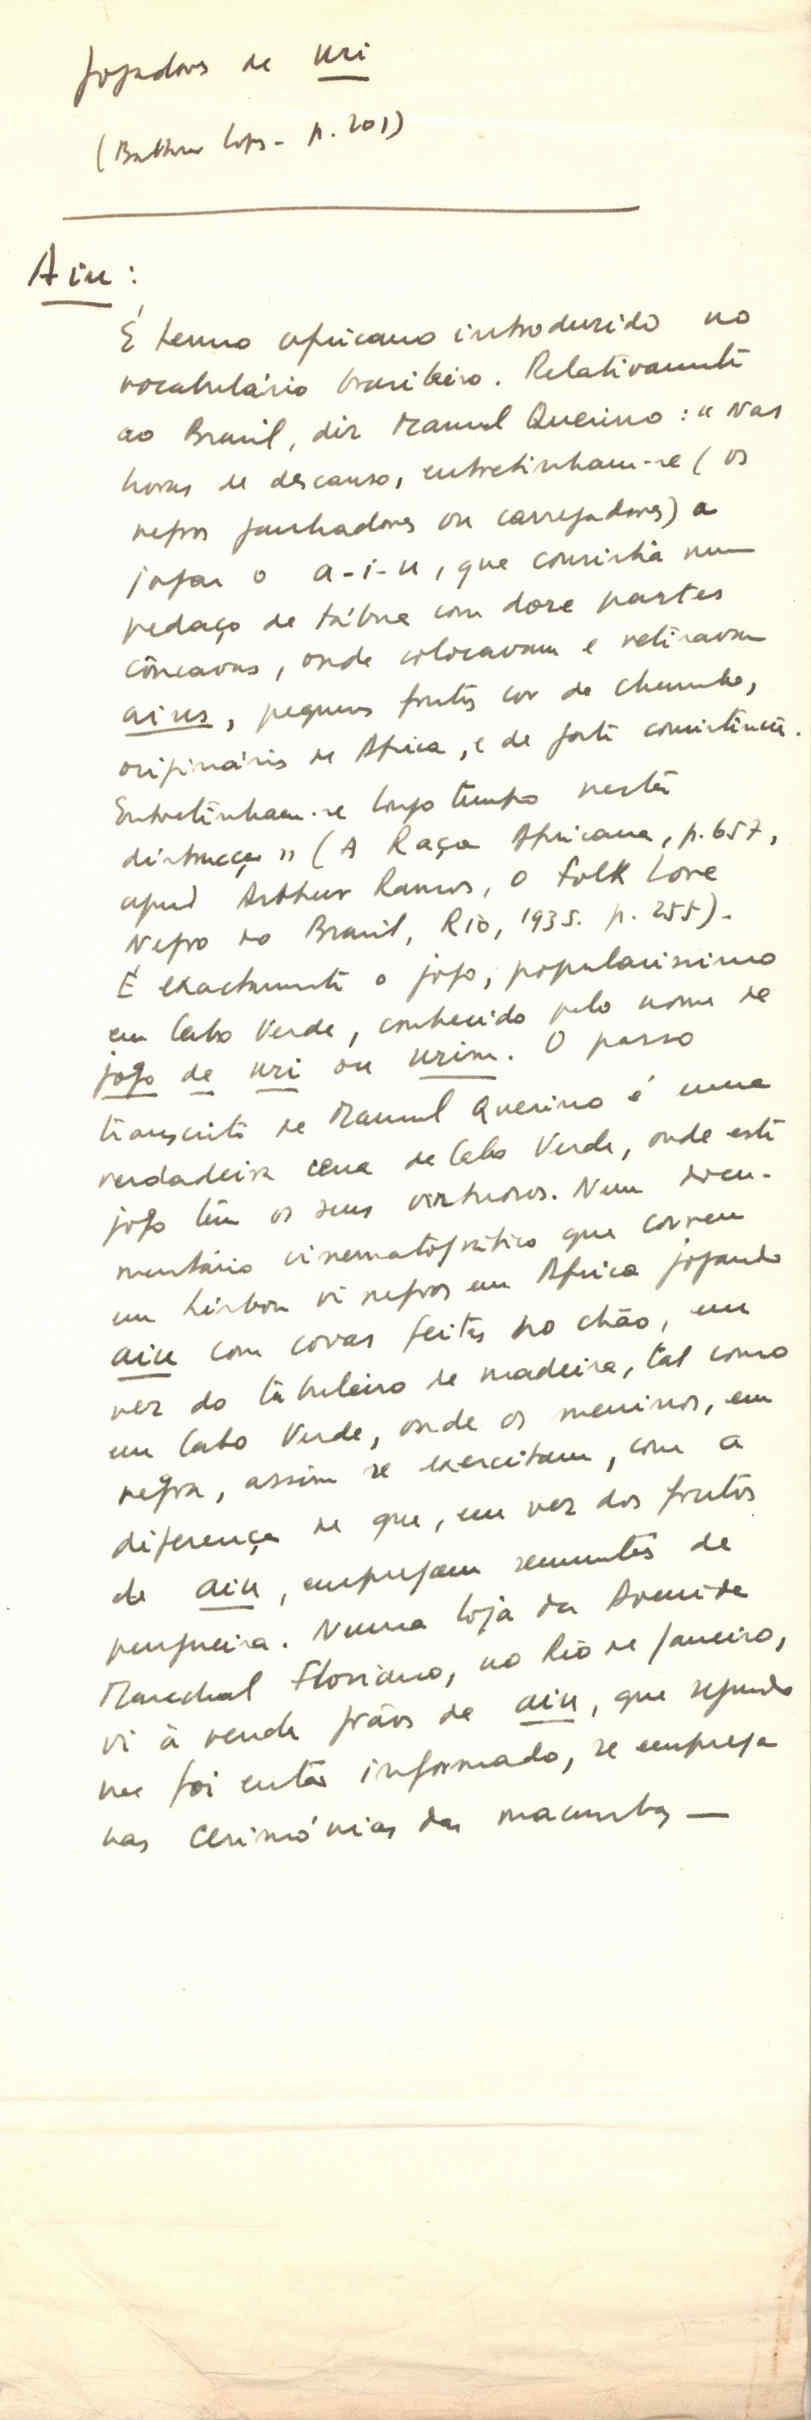 Jogadores de uri
(Balthasar Lopes - p. 201)
Aiu:
É termo africano introduzido no
vocabulário brasileiro. Relativamente
ao Brasil, diz Manuel Querino: "Nas
horas de descanso, entretinham-se (os
negros ganhadores ou carregadores) a
jogar o a-i-u, que consistia num
pedaço de tábua com doze partes
côncavas, onde colocavam e retiravam
aius, pequenos frutos cor de chumbo,
originários de Africa, e de forte consistência.
Entretinham-se longo tempo nesta
distracção" (A Raça Africana, p. 657,
apud Arthur Ramos, O Folk Lore
Negro do Brasil, Rio, 1935. p. 255).
É exactamente o jogo, popularissimo
em Cabo Verde, conhecido pelo nome de
jogo de uri ou urim. O passo
transcrito de Manuel Querino é uma
verdadeira cena de Cabo Verde, onde este
jogo tem os seus virtuosos. Num docu-
mentário cinematográfico que correu
em Lisboa vi negros em Africa jogando
aiu com covas feitas no chão, em
vez do tabuleiro de madeira, tal como
em Cabo Verde, onde os meninos, em
regra, assim se exercitam, com a
diferença de que, em vez dos frutos
de aiu, empregam sementes de
purgueira. Numa loja da Avenida
Marechal Floriano, no Rio de Janeiro,
vi à venda grãos de aiu, que segundo
me foi então informado, se emprega
nas cerimónias das macumbas —